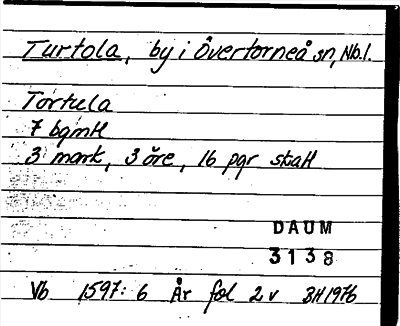 Turtola, by i Övertorneå sn, Nb.l.
Tortula
7 bgmH
3 mark, 3 öre, 16 pgr skaH
DAUM
3138
Vb 1597: 6 År fol 2 v BH1976